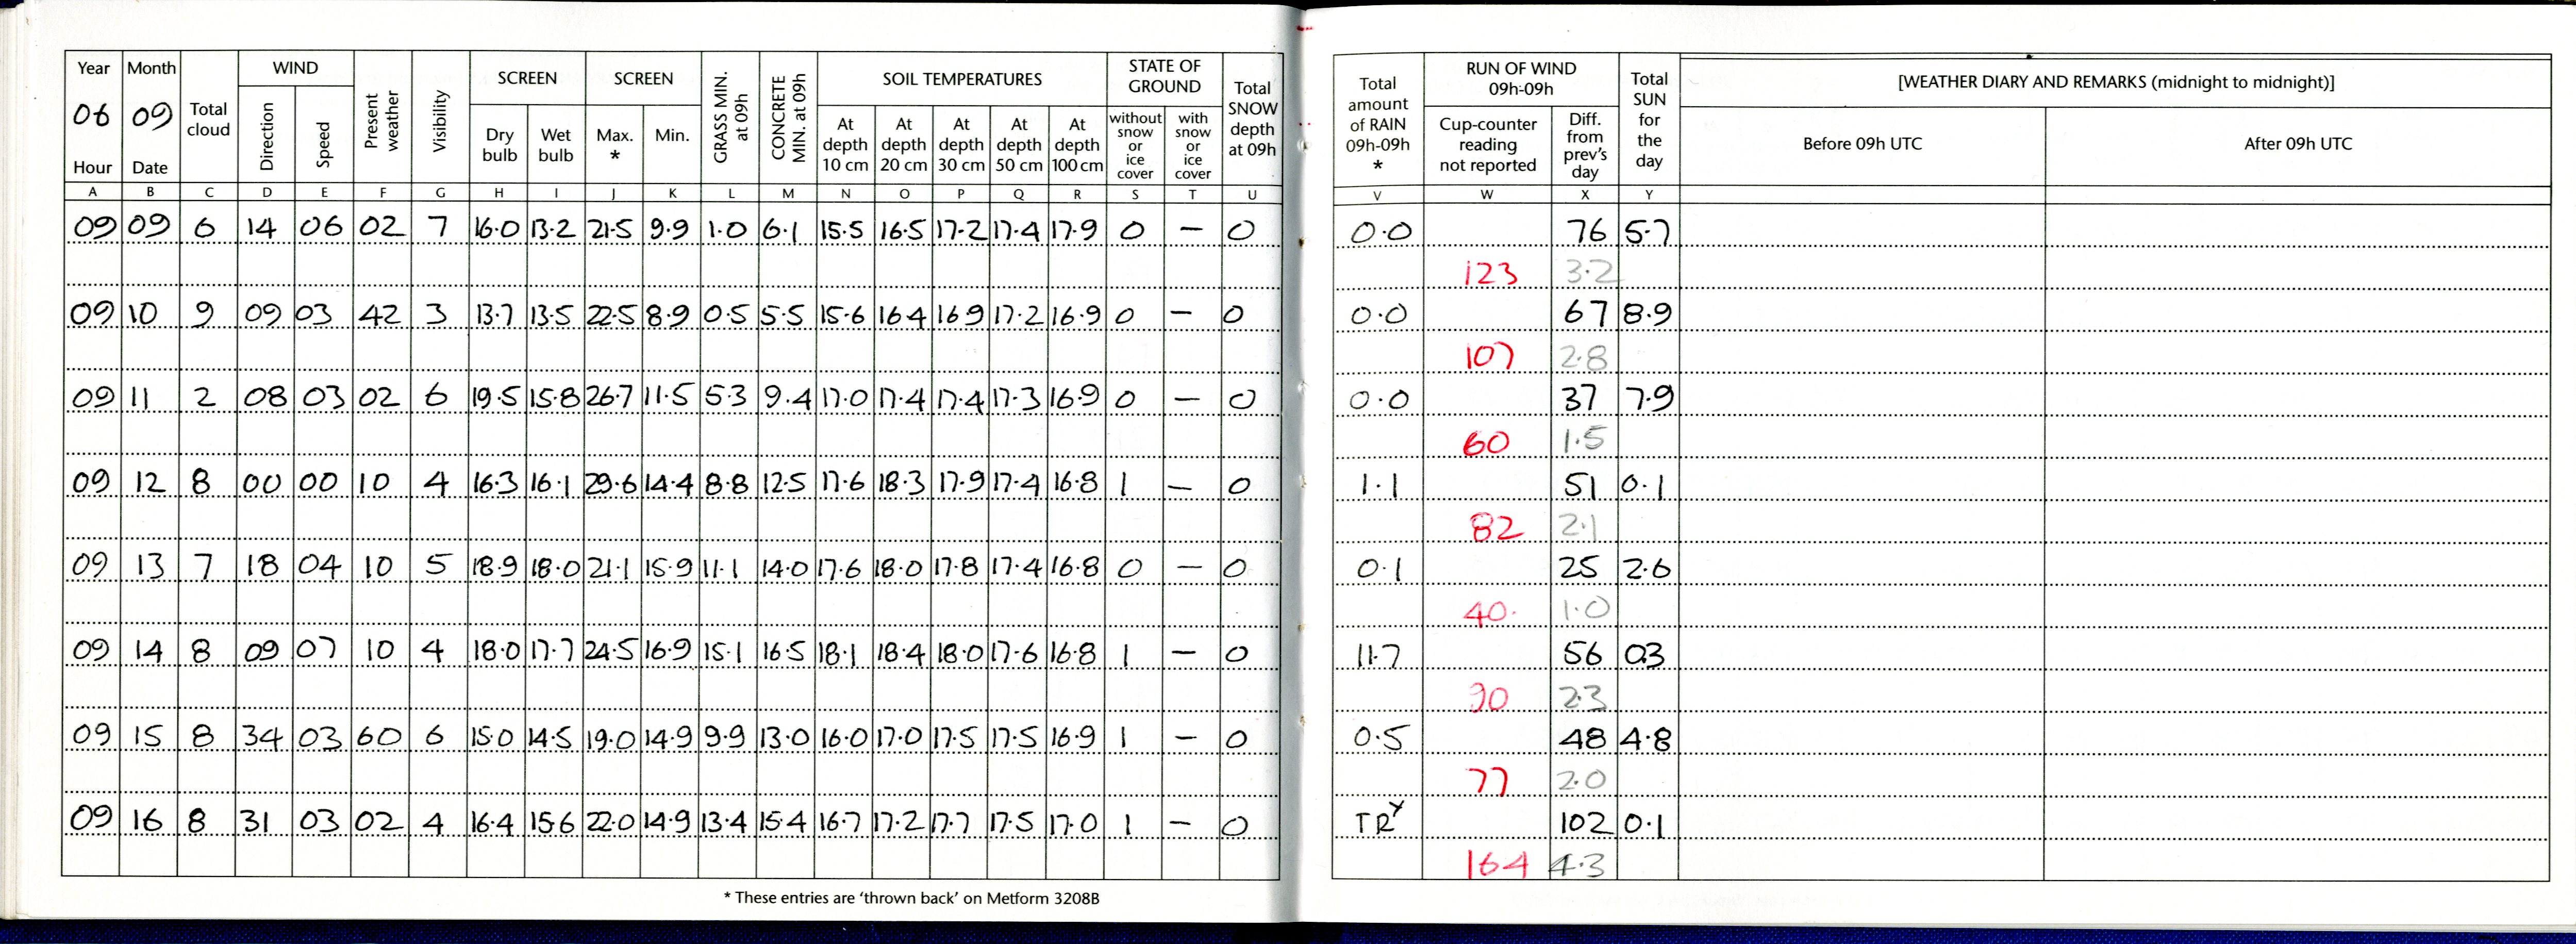 Year Month Total cloud WIND Present weather Visibility SCREEN SCREEN GRASS MIN. at 09h CONCRETE MIN. at 09h SOIL TEMPERATURES STATE OF GROUND Total SNOW depth at 09h Total amount of RAIN 09h-09h * RUN OF WIND 09h-09h Total SUN for the day [WEATHER DIARY AND REMARKS (midnight to midnight)]
06 09 Direction Speed Dry bulb Wet bulb Max. * Min. At depth 10 cm At depth 20 cm At depth 30 cm At depth 50 cm At depth 100 cm without snow or ice cover with snow or ice cover Cup-counter reading not reported Diff. from prev's day Before 09h UTC After 09h UTC
Hour Date
A B C D E F G H I J K L M N O P Q R S T U V W X Y
09 09 6 14 06 02 7 16.0 13.2 21.5 9.9 1.0 6.1 15.5 16.5 17.2 17.4 17.9 0 – 0 0.0 76 5.7
123 3.2
09 10 9 09 03 42 3 13.7 13.5 22.5 8.9 0.5 5.5 15.6 16 4 16 9 17.2 16.9 0 – 0 0.0 67 8.9
107 2.8
09 11 2 08 03 02 6 19.5 15.8 26.7 11.5 5.3 9.4 17.0 17.4 17.4 17.3 16.9 0 – 0 0.0 37 7.9
60 1.5
09 12 8 00 00 10 4 16.3 16.1 29.6 14.4 8.8 12.5 17.6 18.3 17.9 17.4 16.8 1 – 0 1.1 51 0.1
82 2.1
09 13 7 18 04 10 5 18.9 18.0 21.1 15.9 11.1 14.0 17.6 18.0 17.8 17.4 16.8 0 – 0 0.1 25 2.6
40. 1.0
09 14 8 09 07 10 4 18.0 17.7 24.5 16.9 15.1 16.5 18.1 18.4 18.0 17.6 16.8 1 – 0 11.7 56 0.3
90 2.3
09 15 8 34 03 60 6 15.0 14.5 19.0 14.9 9.9 13.0 16.0 17.0 17.5 17.5 16.9 1 – 0 0.5 48 4.8
77 2.0
09 16 8 31 03 02 4 16.4 15.6 22.0 14.9 13.4 15.4 16.7 17.2 17.7 17.5 17.0 1 – 0 TRY 102 0.1
164 4.3
* These entries are 'thrown back' on Metform 3208B